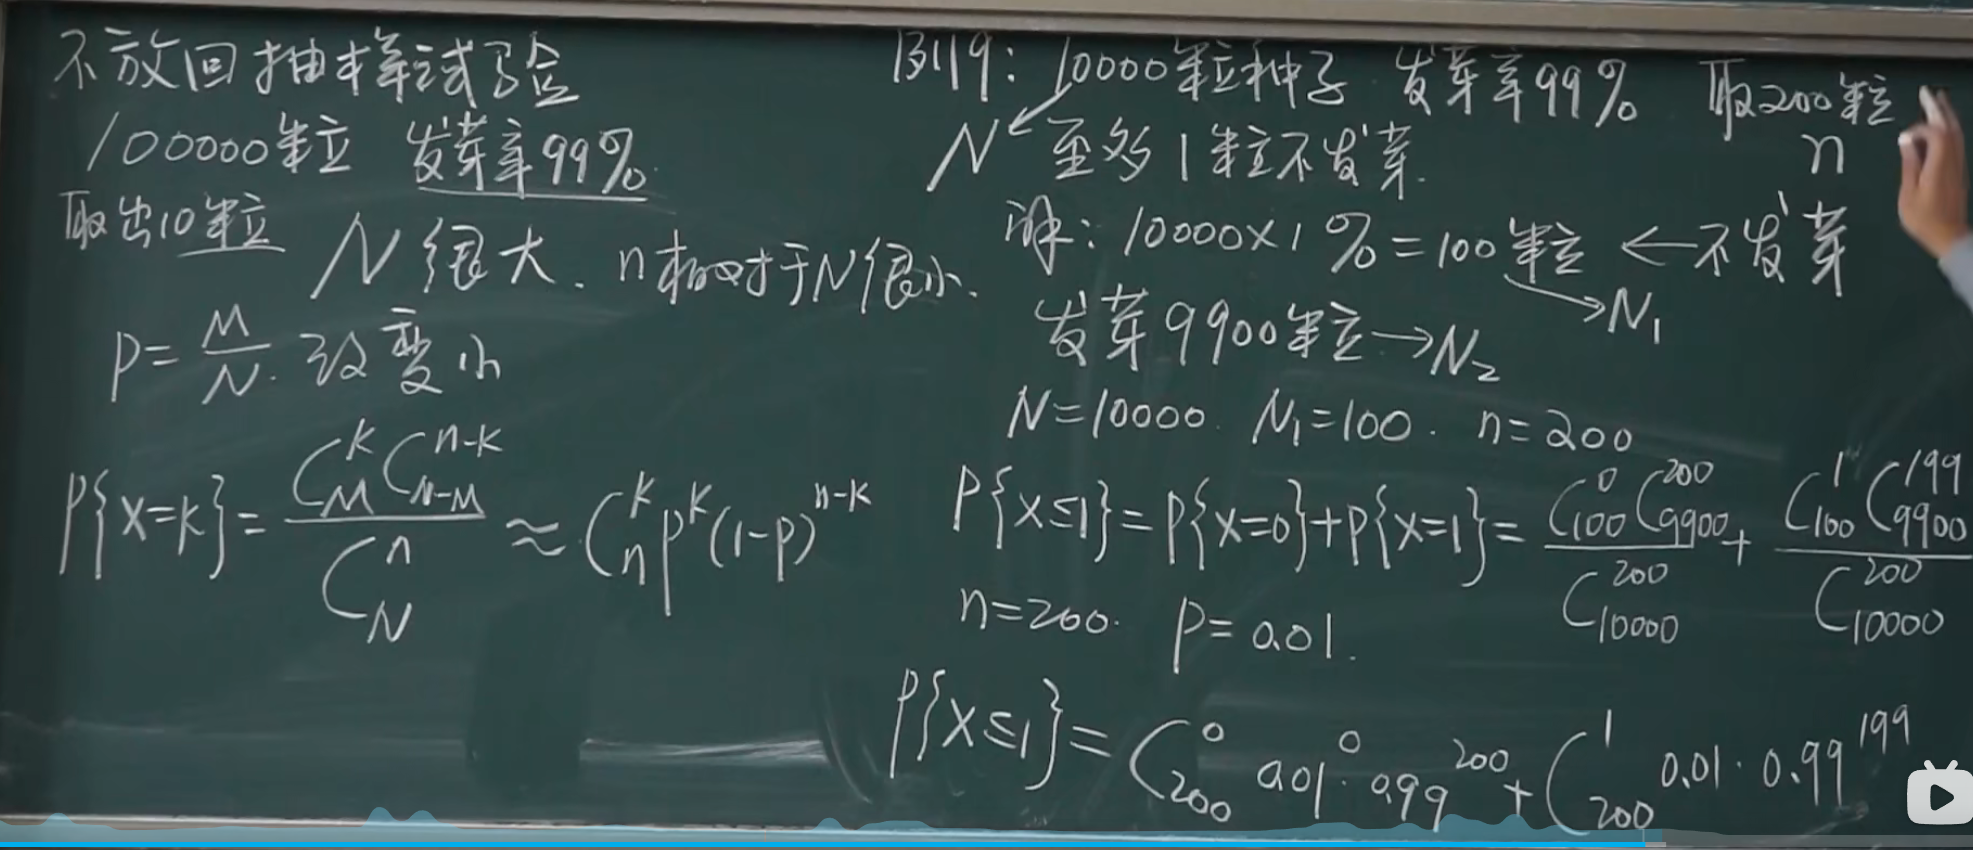 不放回抽样试验
100000粒 发芽率99%.
取出10粒
N很大. n相对于N很小.
P=M/N. 改变小
P{X=K}=C_M^K C_{N-M}^{n-K}/C_N^n≈C_n^K P^K(1-P)^{n-K}
例19: 10000粒种子 发芽率99% 取200粒
N 至多1粒不发芽. n
解: 10000×1%=100粒←不发芽
→N₁
发芽9900粒→N₂
N=10000. N₁=100. n=200
P{X≤1}=P{X=0}+P{X=1}=C_{100}^0 C_{9900}^{200}/C_{10000}^{200}+C_{100}^1 C_{9900}^{199}/C_{10000}^{200}
n=200. P=0.01.
P{X≤1}=C_{200}^0 0.01^0·0.99^{200}+C_{200}^1 0.01·0.99^{199}